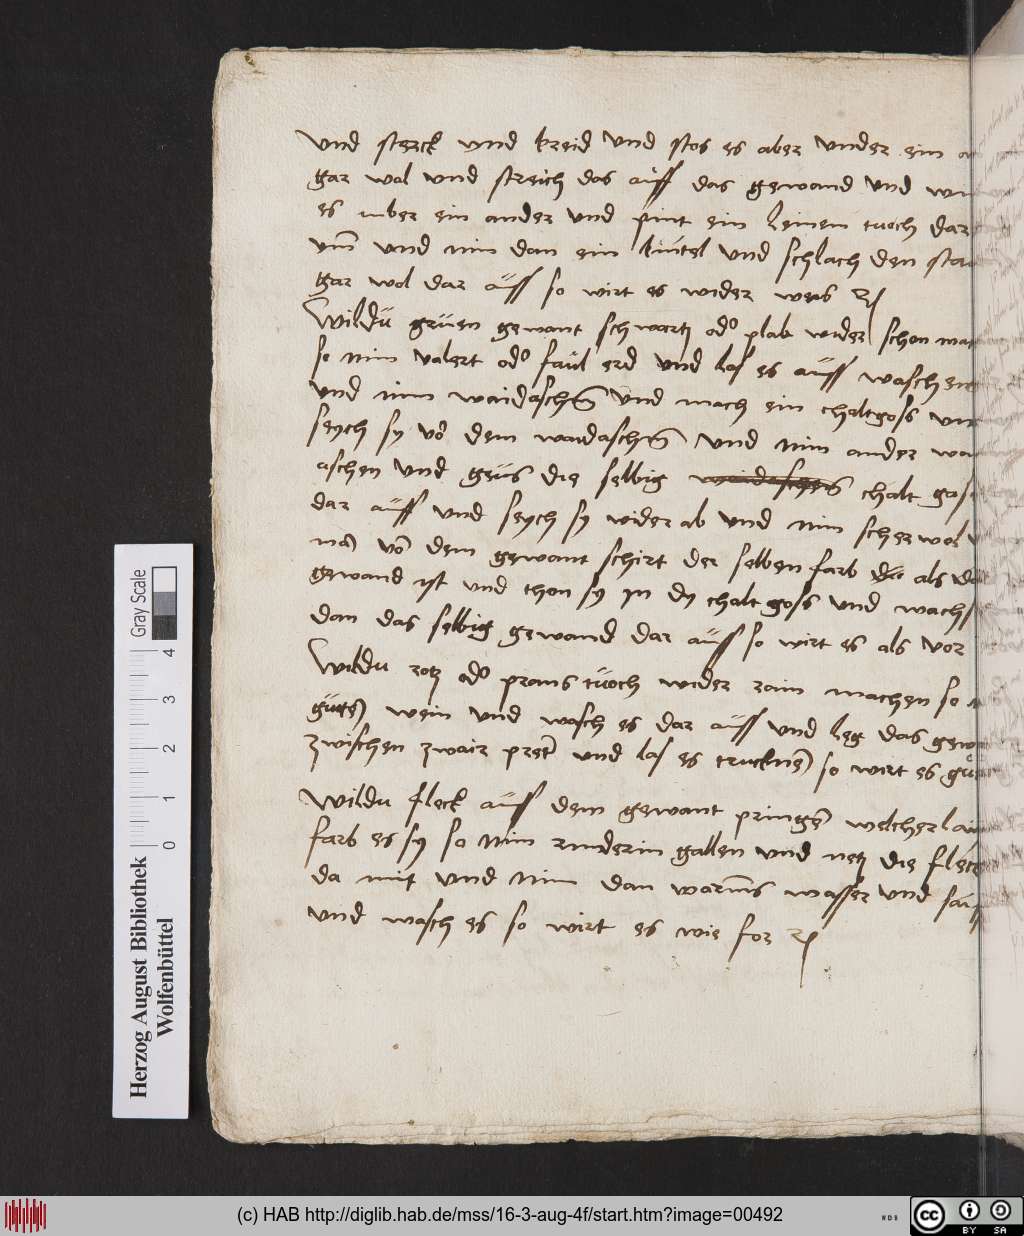 und sterck und kreid und stos es aber under ein
gar wol und streich das auff das gewand und
es uber ein ander und pint ein leinen tuoch dar
um̄ und nim dan ein knutel und schlach den
gar wol dar auff so wirt es wider weis
Wildu gruen gewant schwartz od° plab wider schon
so nim valert od° faul erd und las es auff waschen
und nim waidaschn̄ und mach ein chaltgoss
seych sy vō dem waidaschn̄ und nim ander
aschen und geus die selbig chalt
dar auff und seych sy wider ab und nim scherwol
mā vō dem gewant schirt der selben farb als
gewand ist und thon sy in dy chalt goss und
dan das selbig gewand dar auff so wirt es als vor
Wildu rotz od° prauns tuoch wider rain machen so
gutē wein und wasch es dar auff und leg das
zwischen zwair pret und las es trucknē so wirt es
Wildu fleck auff dem gewant pringē welcherlai
farb es sy so nim rinderin gallen und netz die
da mit und nim dan warm̄s wasser und
und wasch es so wirt es wie for
Gray Scale
0 1 2 3 4
Herzog August Bibliothek
Wolfenbüttel
(c) HAB http://diglib.hab.de/mss/16-3-aug-4f/start.htm?image=00492
WDB
cc BY SA